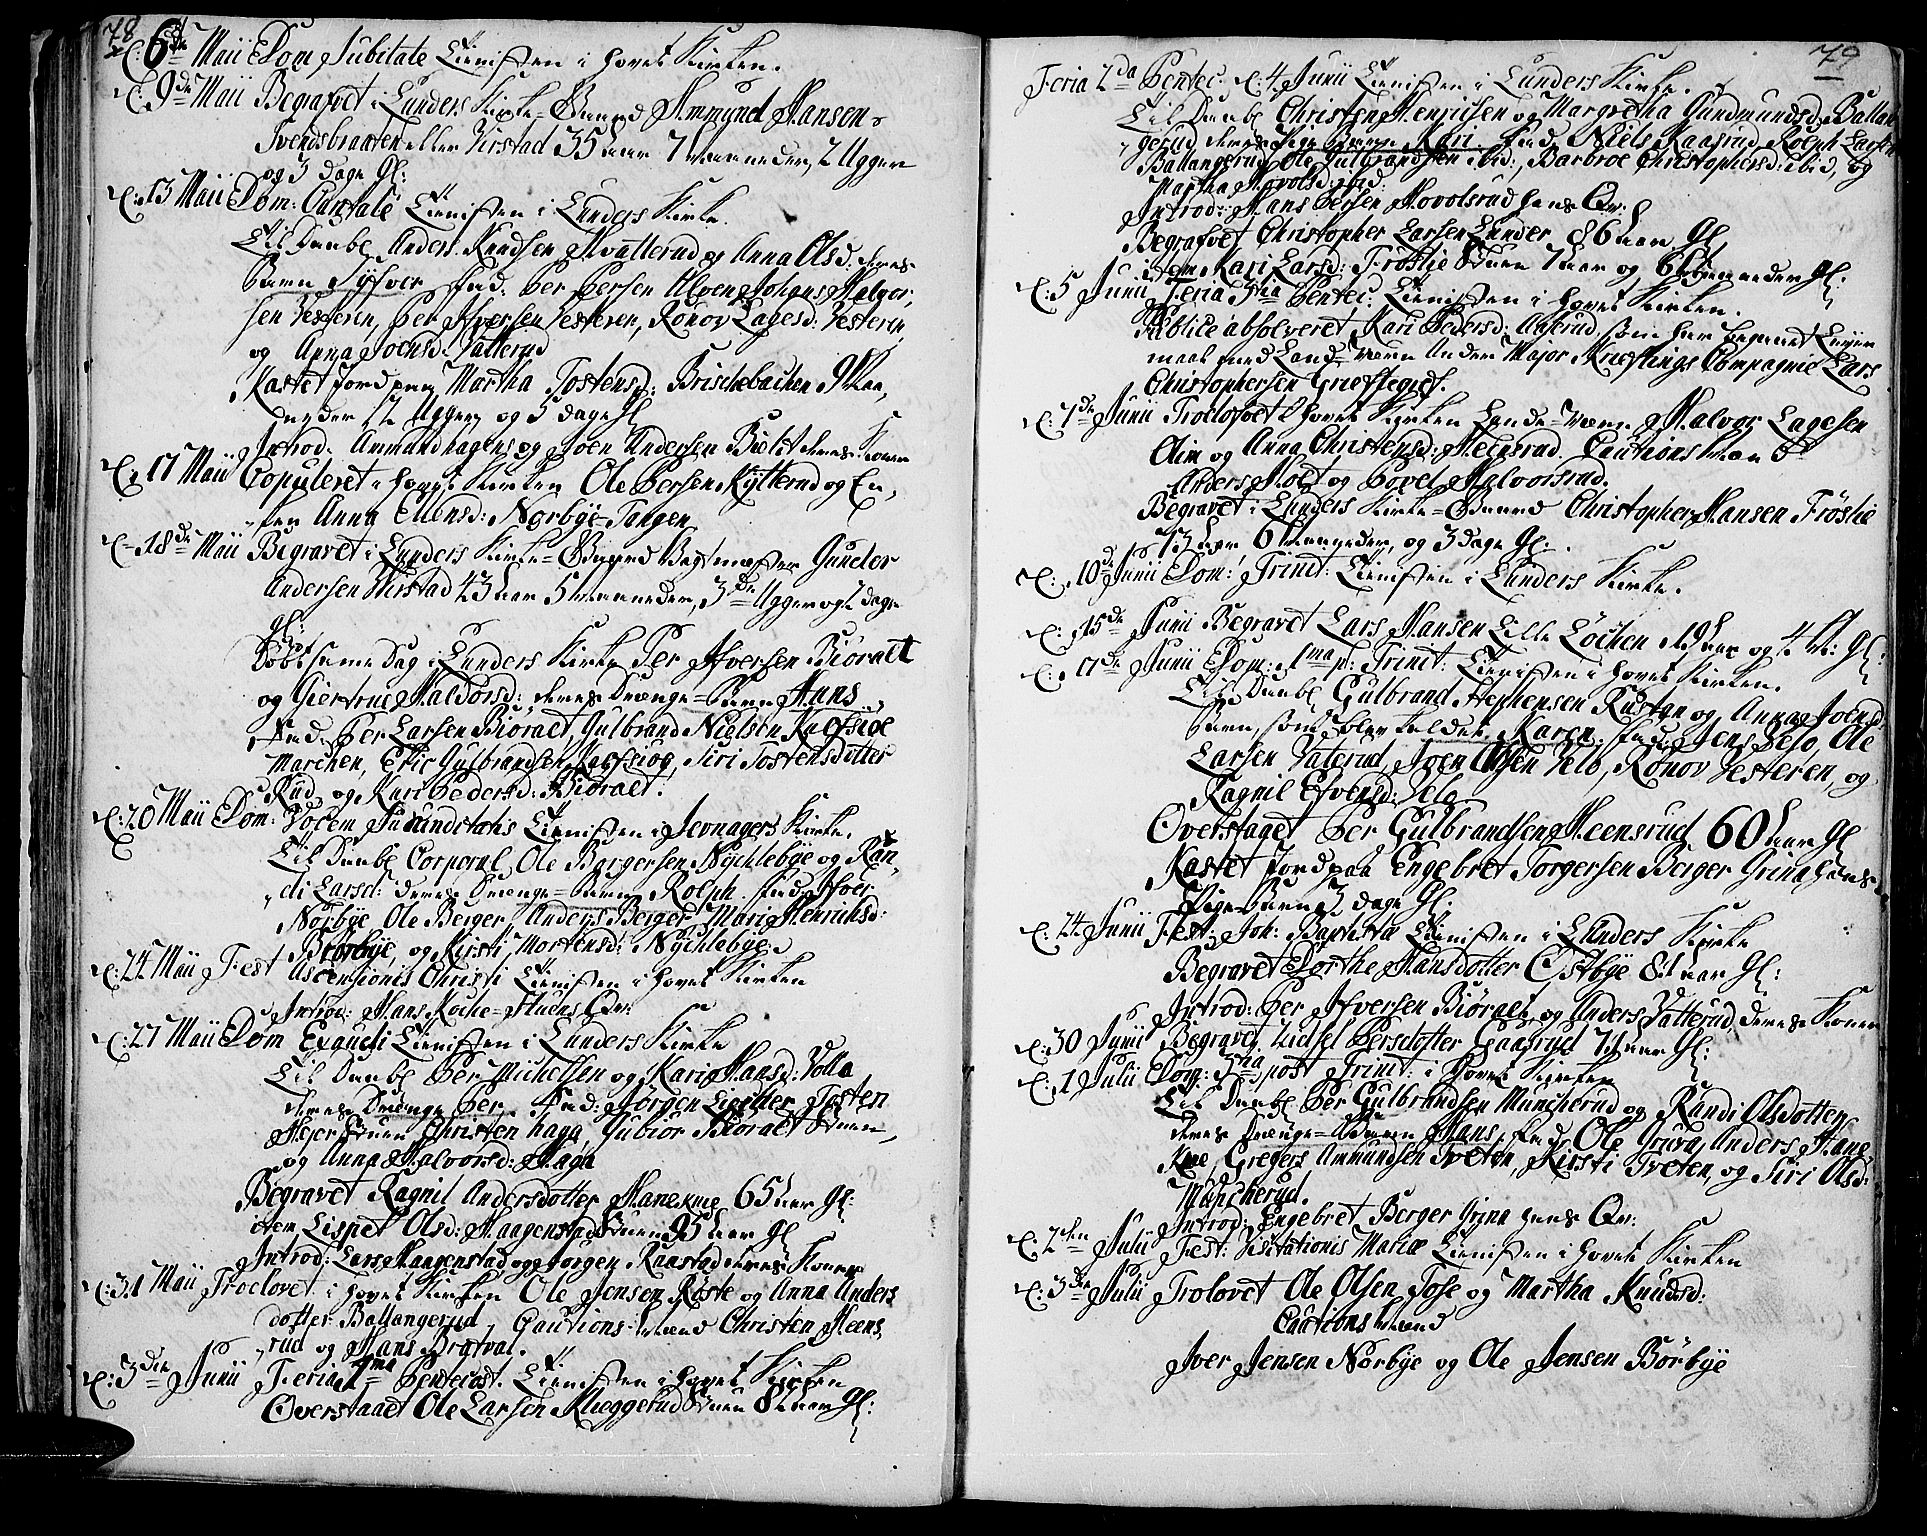 78
d: 6te Maii Dom Jubilate Tienisten i Hovet Kirken.
d: 9de Maii Begrafvet i Lunders Kirke-Gaard Ammund Hansen
Svendsbraaten eller Virstad 35 Aar 7 Maaneder, 2 Uger
og 3 dage Gl:
d: 13 Maii Dom: Cantate Tienisten i Lunders Kirke.
Til Daabs Anders Knudsen Hvatterud og Anna Olsd: deres
Barn Syfver Fad: Per Persen Ulven Johans Halvor,
sen Vesteren, Per Iversen Vesteren, Ronov Lagesd: Vesteren,
og Anna Joensd: Vatterud
Kastet Jord paa Martha Tostensd: Brischebachen 9 Maa,
neder 2 Uger, og 5 dage Gl
Introd. Ammund hagens og Joen Andersen deres Koner
d: 17 Maii Copuleret i Hovet Kirken Ole Persen Kytterud og En,
ken Anna Ellensd: Norbye-Tangen
d: 18de Maii Begravet i Lunders Kirke-Gaard Gunder
Andersen Virstad 43 Aar 5 Maaneder, 3de Uger og 2 dage
gl:
Døbt same Dag i Lunders Kirke Per Iversen Biöraet
og Giertrue Haldorsd: deres Drenge-Barn Hans
Fad: Per Larsen Biöraet, Gulbrand Nielsen Kalfsiöe
Marchen, Eric Gulbrandsen Kalfsiöe, Siri Tostensdotter
Rud, og Kari Pedersd: Biöraet.
d: 20 Maii Dom: Vocem Jucunditatis Tienisten i Jevnagers Kirke.
Til Daabs Corporal Ole Borgersen Nychlebye og Ran,
di Larsd: deres Drenge-Barn Rolph Fad: Iver
Norbye Ole Berger Anders Berger, Mari Henrichsd:
Børbye, og Kirsti Mortensd: Nychlebye.
d: 24 Maii Fest Ascensionis Christi Tienisten i Hovet Kirken
Introd: Hans Koche-Stuens Qv:
d: 27 Maii Dom Exaudi Tienisten i Lunders Kirke
Til Daabs Per Michelsen og Kari Hansd: Volla
deres Drenge Per Fad: Jörgen Lunder, Tosten
Hejerstuen Christen haga, Gubiör Biöraet Stuen,
og Anna Halvorsd: Haga
Begravet Ragnil Andersdotter Hanekne 65 Aar Gl:
item Lispet Olsd: Haagenstad Stuen 95 Aar Gl
Introd: Lars Haagenstad og Jörgen Raastad deres Koner
d: 31 Maii Troelovet i Hovet Kirken Ole Jensen Röste og Anna Anders
dotter Ballangerud, Cautions-Mænd Christen Heens,
rud og Hans Bratval.
d: 3die Junii Feria 1ma Pentecost. Tienisten i Hovet Kirken
Overstaaet Ole Larsen Kleggerud Stuen 82 Aar Gl:
79
Feria 2da Pentec: d: 4 Junii Tienisten i Lunders Kirke.
Til Daabs Christen Henrichsen og Margretha Gundmundsd: Ballan,
gerud deres Pige Barn Kari Fad: Niels Kaasrud Rolph Larsen
Ballangerud Ole Gulbrandsen ibid:, Barbroe Christophersd: ibid, og
Martha Hovolsd: ibid:
Introd: Hans Persen Hovolsrud hans Qv:
Begrafvet Christopher Larsen Lunder 86 Aar Gl
item Kari Larsd: Fröslie Stuen 7 Aar og 6 Maaneder Gl:
d: 5 Junii Feria 3tia Pentec: Tienisten i Hovet Kirken.
Publice absolveret Kari Pedersd: Aaserud, som har begaaet Leyer
maal med Land-Værn Under Major Kraftings Compagnie Lars
Christophersen Grieftegref.
d: 7de Junii Troelovet i Hovet Kirken Lands-Værn Halvor Lagesen
Elim og Anna Christensd: Heensrud. Cautions Mæn
Anders Holt og Povel Halvorsrud.
Begravet i Lunders Kirke-Gaard Christopher Hansen Fröslie
73 Aar 6 Maaneder, og 3 Dage Gl.
d: 10de Junii Dom: Trinit: Tienisten i Lunders Kirke.
d: 15de Junii Begravet Lars Hansen Lille Löchen 19 Aar og 4 M: Gl:
d: 17de Junii Dom: 1ma p: Trinit: Tienisten i Hovet Kirken.
Til Daabs Gulbrand Stephensen Rustan og Anna Joensd:
Barn, som blev kaldet Karen, Fad: Jens Velo, Ole
Larsen Vaterud, Joen Olsen Velo, Ronov Vesteren, og
Ragnil Efvensd: Velo
Overstaaet Per Gulbrandsen Heensrud 60 Aar Gl
Kastet Jord paa Engebret Torgersen Berger Grina, hans
Pige-Barn 3 dage Gl:
d: 24 Junii Fest: Joh: Baptistæ Tienisten i Lunders Kirke
Begravet Dorthe Hansdotter Ostbye 81 Aar Gl:
Introd: Per Iversen Biöraet og Anders Vatterud, deres Koner
d: 30 Junii Begravet Zidsel Persdotter Gaasrud 71 Aar Gl:
d: 1 Julii Dom: 3tia post Trinit: i Hovet Kirken
Til Daabs Per Gulbrandsen Muncherud og Randi Olsdotter
deres Drenge-Barn Hans, Fad: Ole Gruva, Anders Hane
Kne, Gregers Ammundsen Tveten, Kirsti Tveten, og Siri Olsd:
Muncherud.
Introd: Engebret Berger Grina hans Qv:
d: 2den Julii Fest: Visitationis Mariæ Tienisten i Hovet Kirken
d: 3die Julii Trolovet Ole Olsen Tose og Martha Knudsd:
Cautions Mænd
Iver Jensen Norbye og Ole Jensen Börbye